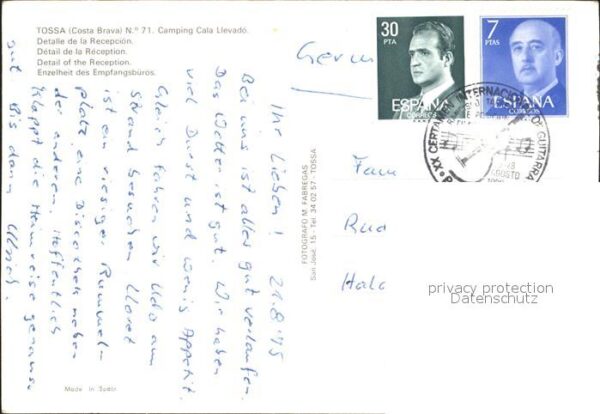 TOSSA (Costa Brava) N.º 71. Camping Cala Llevado.
Detalle de la Recepción.
Détail de la Réception.
Detail of the Reception.
Enzelheit des Empfangsbüros.
Ihr Lieben! 21.8.
Bei uns ist alles gut verlaufen.
Das Wetter ist gut. Wir haben
viel Durst und wenig Appetit.
Gleich fahren wir Udo am
Strand besuchen. Lloret
ist ein riesiger Rummel-
platz eine Discothek neben
der anderen. Hoffentlich
klappt die Heimreise genauso
gut Bis dann Ulrich.
Made in Spain
FOTOGRAFO M. FABREGAS
San José, 15 - Tel. 34 02 57 - TOSSA
30
PTA
ESPAÑA
CORREOS
7
PTAS
ESPAÑA
CORREOS
XX CERTAMEN INTERNACIONAL DE GUITARRA
AGOSTO
Fam
privacy protection
Datenschutz